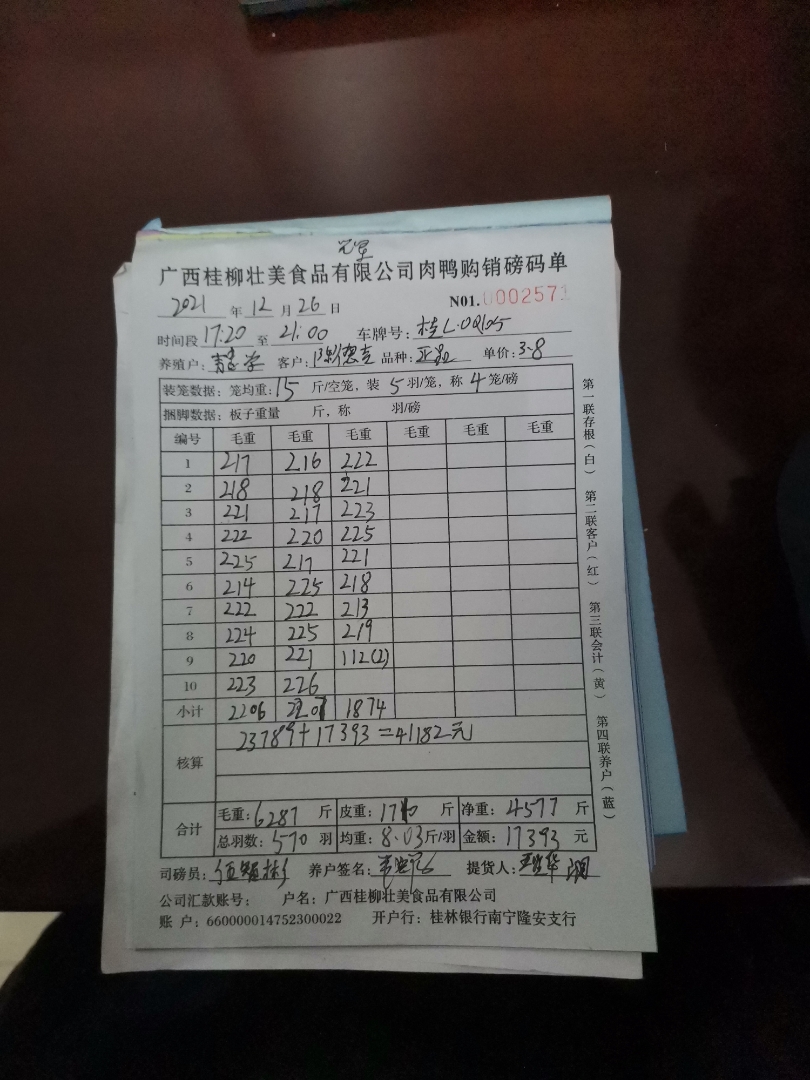 广西桂柳壮美食品有限公司肉鸭购销磅码单
2021 年 12 月 26 日 N01.0002571
时间段 17:20 至 21:00 车牌号: 桂L·0Q105
养殖户: 客户: 品种: 单价: 3.8
装笼数据: 笼均重: 15 斤/空笼, 装 5 羽/笼, 称 4 笼/磅
捆脚数据: 板子重量 斤, 称 羽/磅
编号 毛重 毛重 毛重 毛重 毛重 毛重
1 217 216 222
2 218 218 221
3 221 217 223
4 222 220 225
5 225 217 221
6 214 225 218
7 222 222 213
8 224 225 219
9 220 221 112(2)
10 223 226
小计 2206 2207 1874
核算 23789+17393=41182元
合计 毛重: 6287 斤 皮重: 1710 斤 净重: 4577 斤
总羽数: 570 羽 均重: 8.03 斤/羽 金额: 17393 元
司磅员: 养户签名: 提货人:
公司汇款账号: 户名: 广西桂柳壮美食品有限公司
账 户: 660000014752300022 开户行: 桂林银行南宁隆安支行
第一联存根(白) 第二联客户(红) 第三联会计(黄) 第四联养户(蓝)